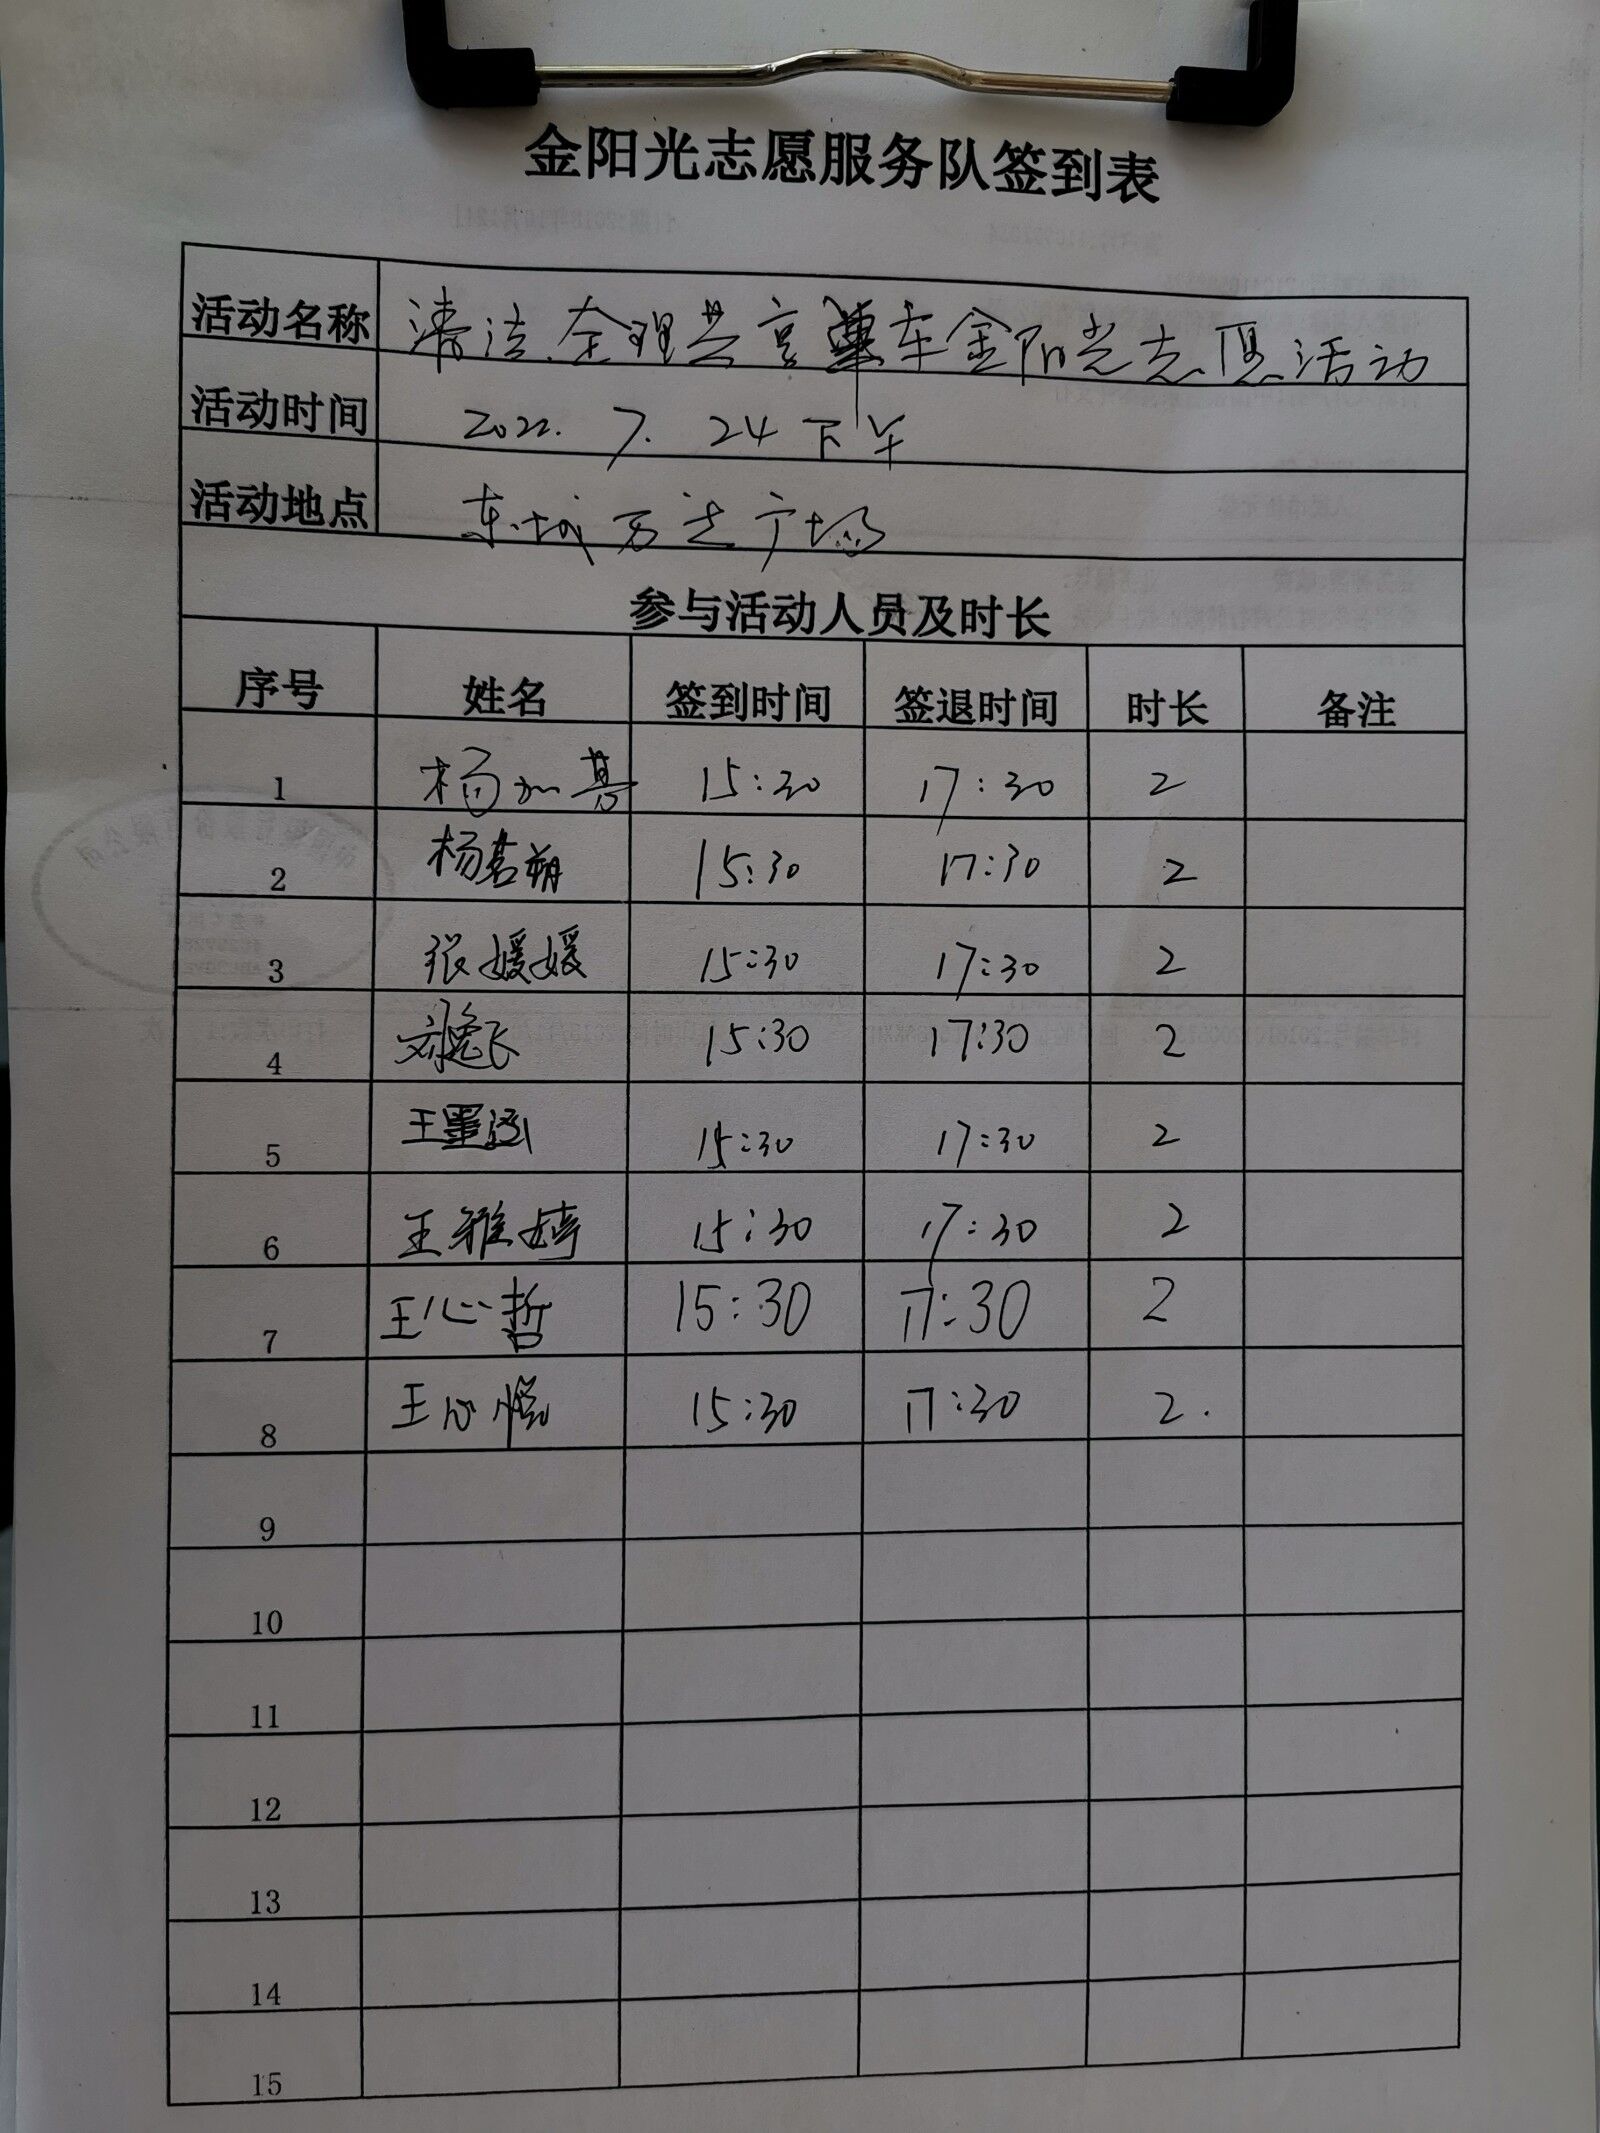 金阳光志愿服务队签到表
活动名称 清洁.全理共享单车金阳光志愿活动
活动时间 2022. 7. 24 下午
活动地点 东城万达广场
参与活动人员及时长
序号 姓名 签到时间 签退时间 时长 备注
1 杨 15:30 17:30 2
2 杨茗朔 15:30 17:30 2
3 张媛媛 15:30 17:30 2
4 飞 15:30 17:30 2
5 王墨涵 15:30 17:30 2
6 王雅婷 15:30 17:30 2
7 王心哲 15:30 17:30 2
8 王心悦 15:30 17:30 2.
9
10
11
12
13
14
15